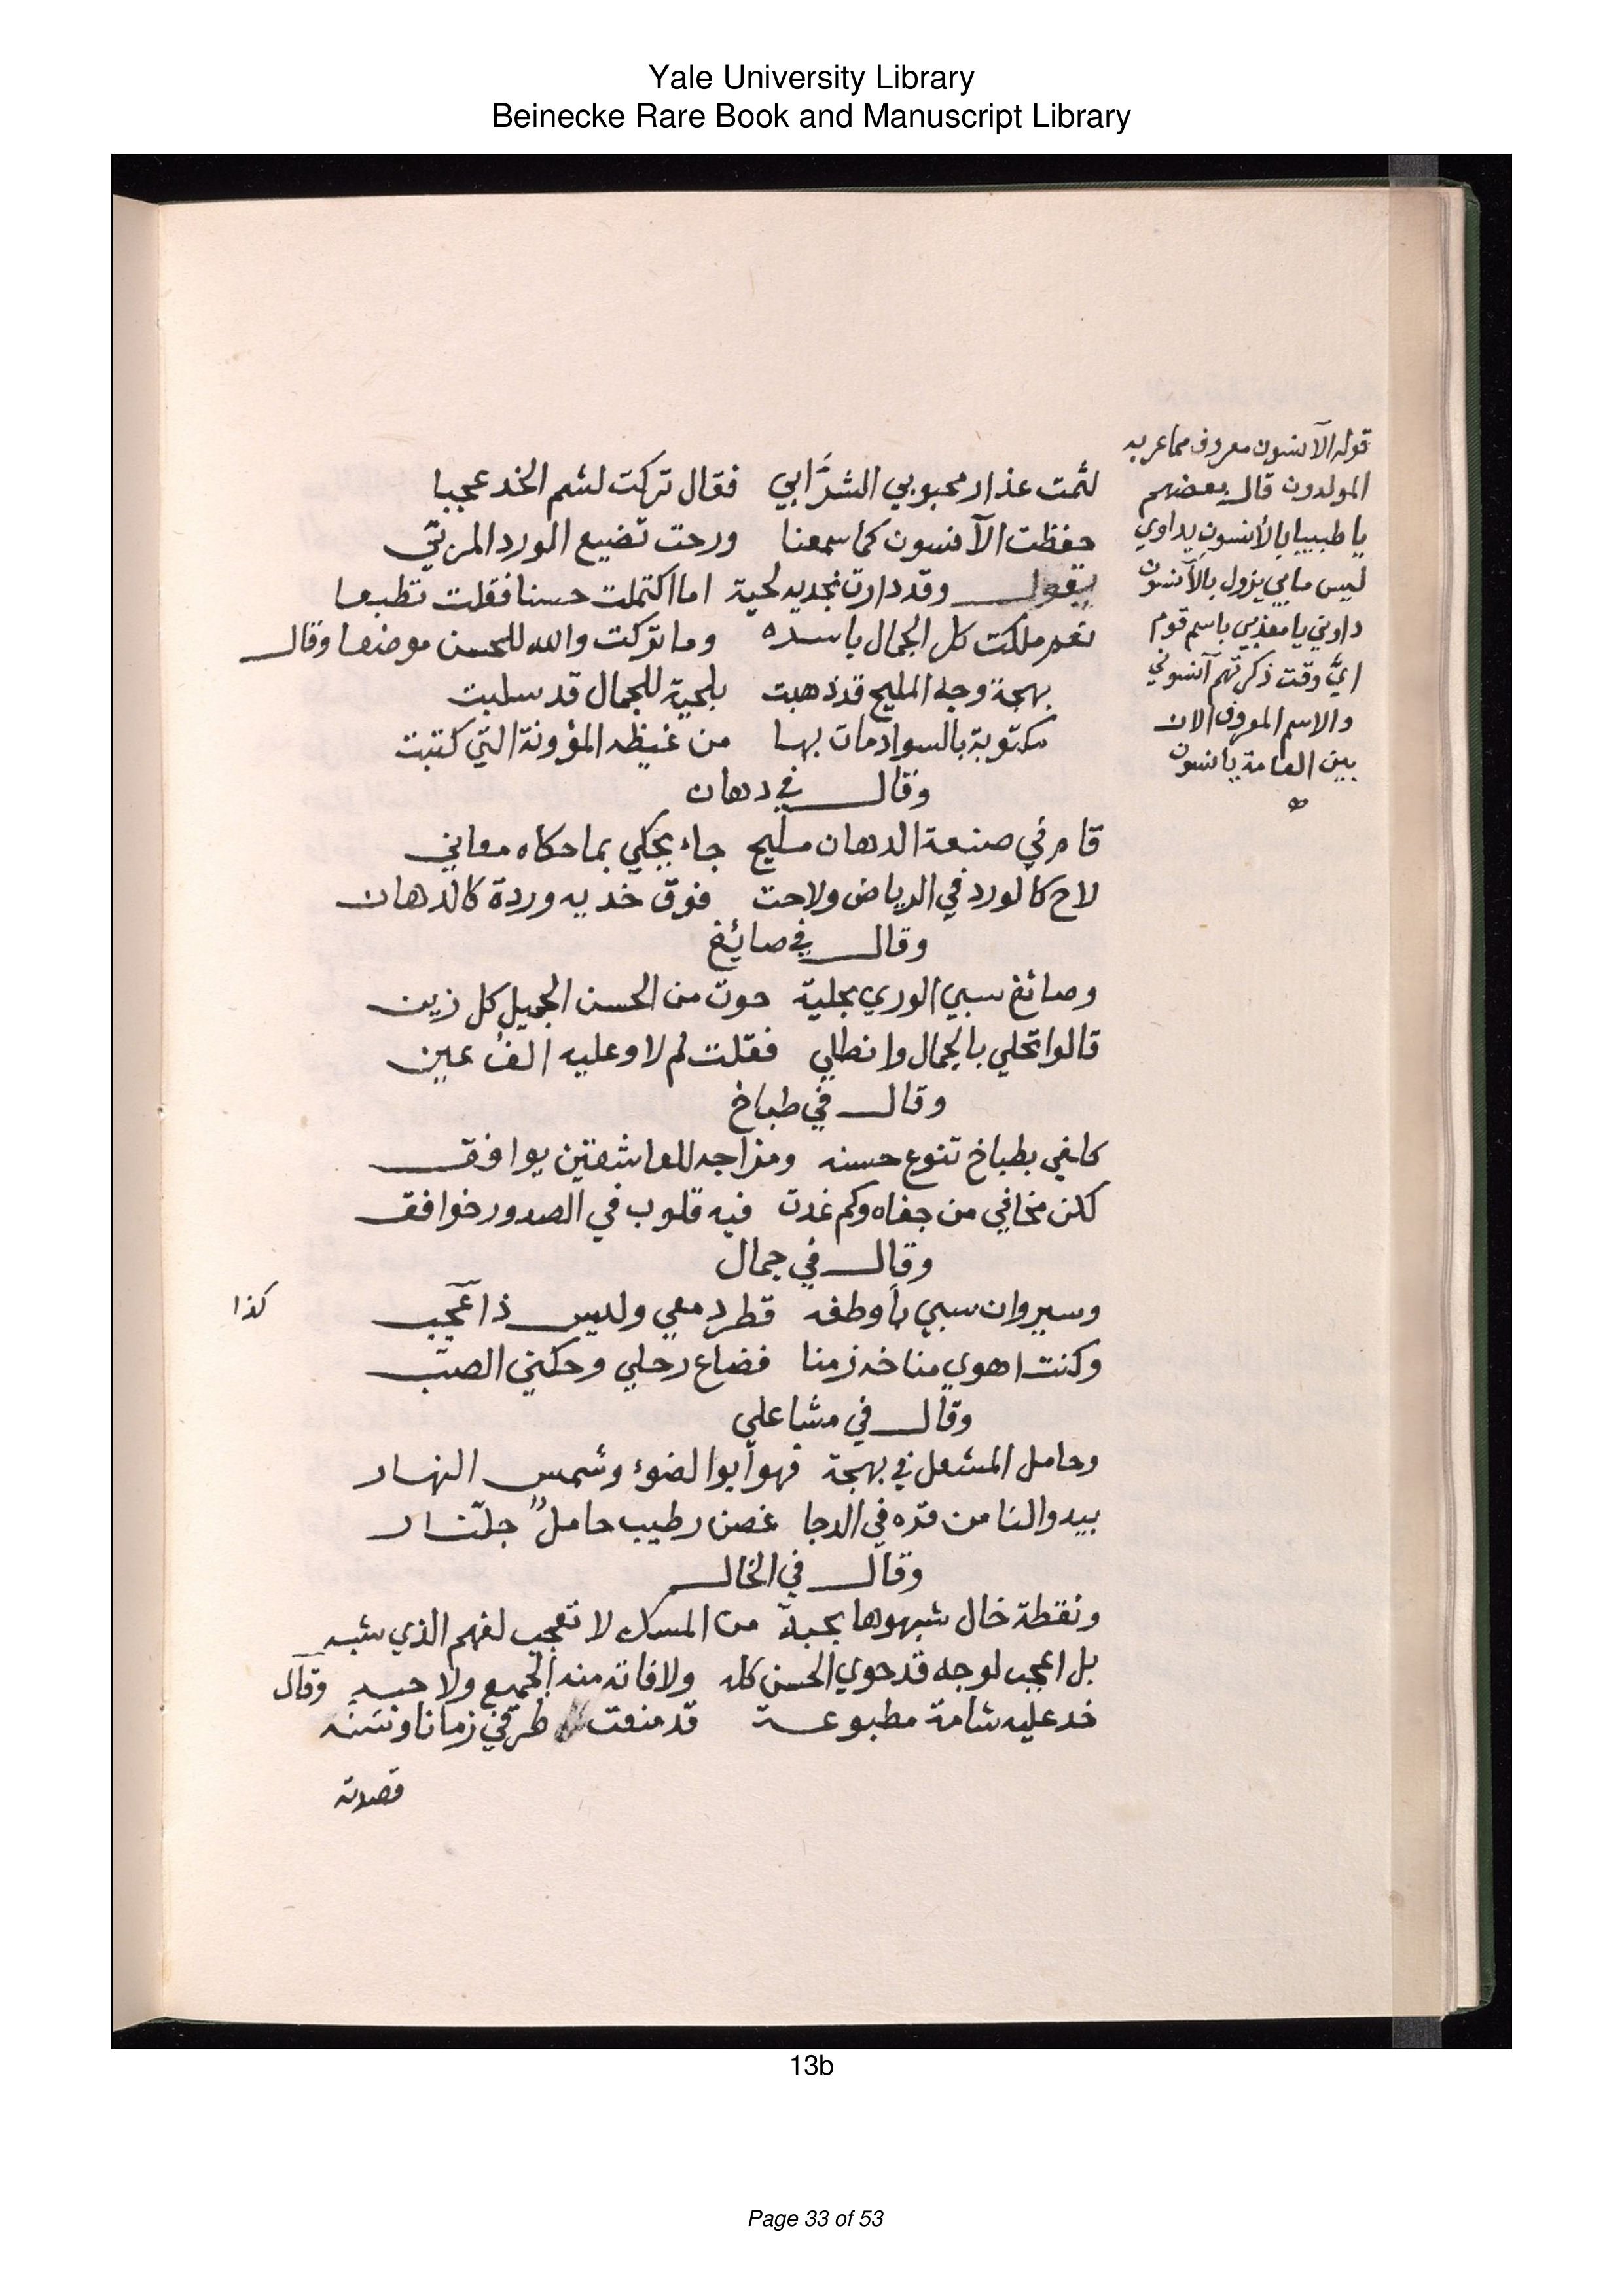 Yale University Library
Beinecke Rare Book and Manuscript Library
قوله الآنسون معروف مما عربه
المولدون قال بعضهم
يا طبيبا بالأنسون يداوي
ليس ما بي يزول بالآنسون
داوني يا معذبي باسم قوم
ايَّ وقت ذكرتهم آنسوني
والاسم المعروف الان
بين العامة يانسون
لثمت عذار محبوبي الشرَّابي فقال تركت لثم الخد عجبا
حفظت الآنسون كما سمعنا ورحت تضيع المورد المربّي
يقول وقد دارت بخديه لحية اما اكتملت حسنا فقلت تطبعا
نعم ملكت كل الجمال باسره وما تركت والله للحسن موضعا وقال
بهجة وجه المليح قد ذهبت بلحية للجمال قد سلبت
مكتوبة بالسواد مات بها من غيظه المؤونة التي كتبت
وقال في دهان
قام في صنعة الدهان مليح جاء يحكي بما حكاه معاني
لاح كالورد في الرياض ولاحت فوق خديه وردة كالدهان
وقال في صائغ
وصائغ سبي الوري بحلية حوت من الحسن الجميل كل زين
قالوا تحلي بالجمال وانطلي فقلت لم لا وعليه الفُ عين
وقال في طباخ
كلفي بطباخ تنوع حسنه ومزاجه للعاشقين يوافق
لكن مخافي من جفاه وكم غدت فيه قلوب في الصدور خوافق
وقال في جمال
وسيروان سبي بأوطفه قطر دمعي وليس ذا عجب
كذا
وكنت اهوي مناخه زمنا فضاع رحلي وحكني الصبّب
وقال في مشاعلي
وحامل المشعل في بهجة فهو أبو الضوء وشمس النهار
يبدو لنا من قدّه في الدجا غصن رطيب حاملٌ جلّنار
وقال في الخال
ونقطة خال شبهوها بحبة من المسك لا تعجب لفهم الذي شبه
بل اعجب لوجه قد حوي الحسن كله ولا فاته منه الجميع ولا حبه وقال
خد عليه شامة مطبوعة قد منعت طرفي زمانا وسَنَه
قصدته
13b
Page 33 of 53